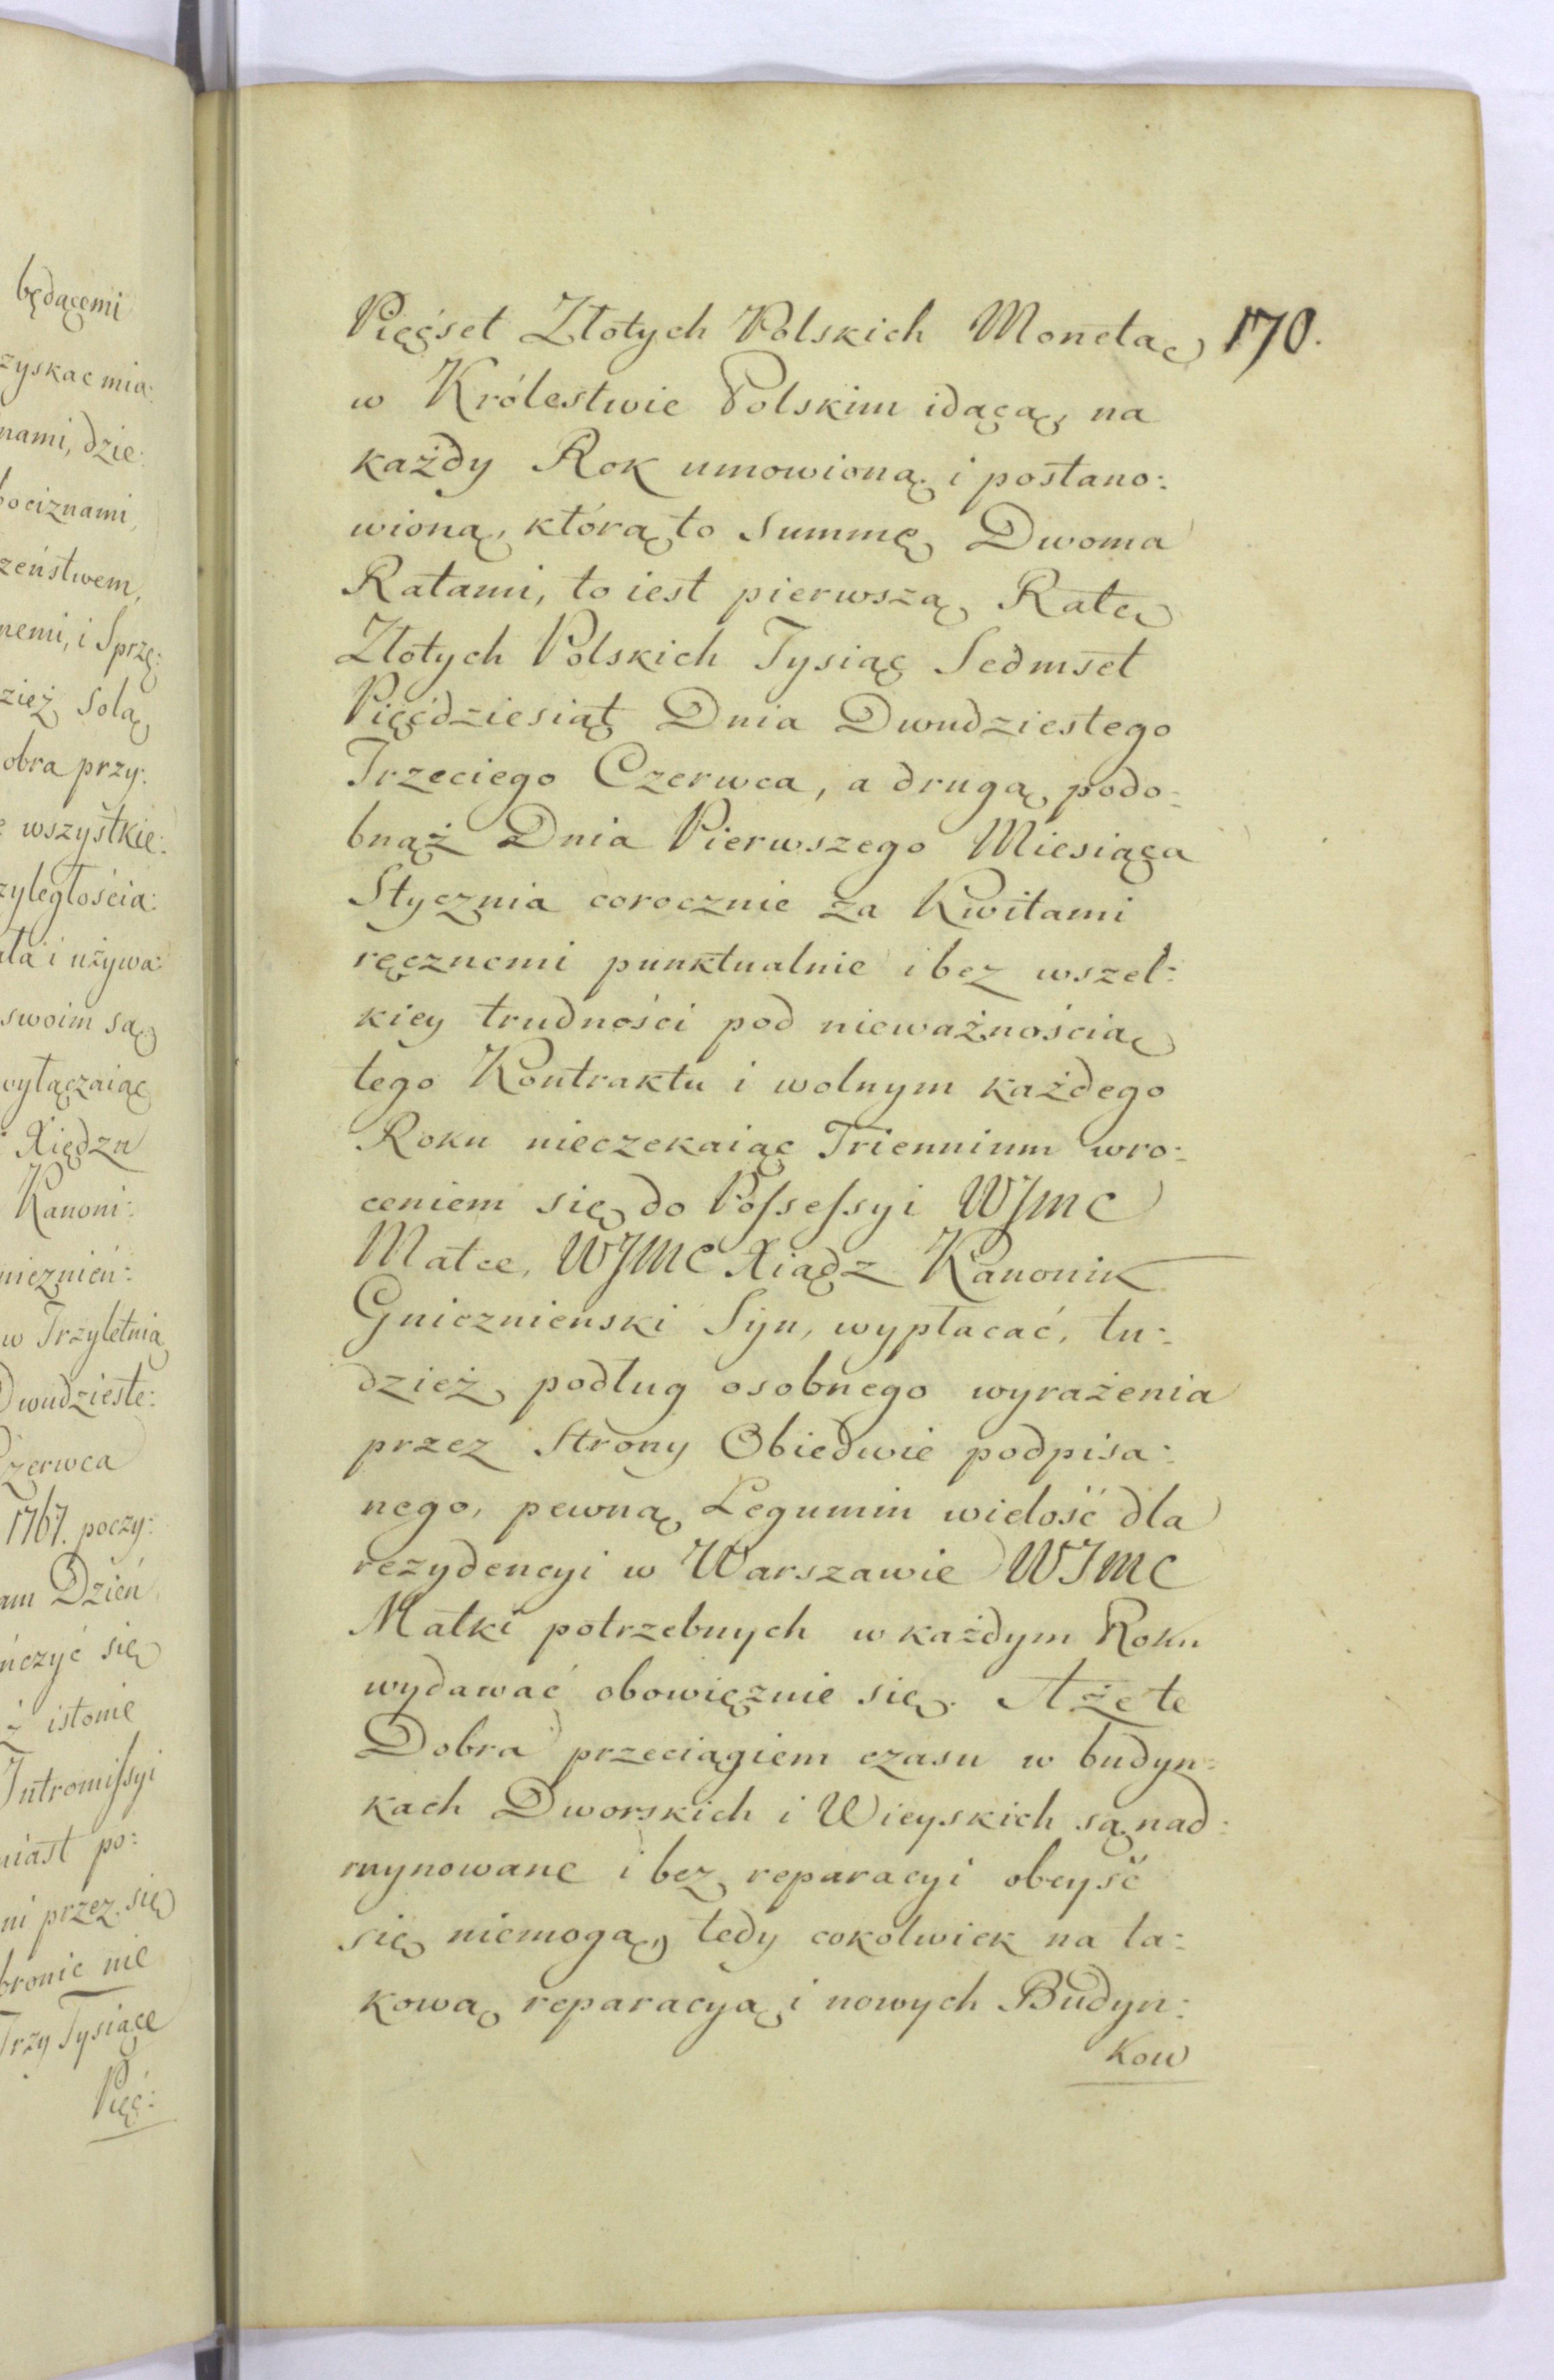 będącemi
zyskac mia:
nami, dzie:
bociznami,
zeństwem,
nemi, i Sprzę:
zież Solą
obra przy:
wszystkie:
zyległościa:
ata i używa:
swoim są
wyłączaiąc
Xiędzu
Kanoni:
nieznień:
w Trzyletnią
Dwudzieste:
Czerwca
1767. poczy:
am Dzień
ńczyć się
ż istonie
Intromissyi
miast po:
ni przez się
bronic nie
Trzy Tysiące
Pięć:
Pięćset Złotych Polskich Monetą 170.
w Królestwie Polskim idącą, na
każdy Rok umowioną i postano:
wioną, którą to Summę Dwoma
Ratami, to iest pierwszą Ratę
Złotych Polskich Tysiąc Sedmset
Pięćdziesiąt Dnia Dwudziestego
Trzeciego Czerwca, a drugą podo:
bnąż Dnia Pierwszego Miesiąca
Stycznia corocznie za Kwitami
ręcznemi punktualnie i bez wszel:
kiey trudności pod nieważnością
tego Kontraktu i wolnym każdego
Roku nieczekaiąc Triennium wro:
ceniem się do Possessyi WJMC
Matce, WJMC Xiądz Kanonik
Gnieznienski Syn, wypłacać, tu:
dzież podług osobnego wyrażenia
przez Strony Obiedwie podpisa:
nego, pewną Legumin wielość dla
rezydencyi w Warszawie WJMC
Matki potrzebnych w każdym Roku
wydawać obowięznie się. A że te
Dobra przeciągiem czasu w budyn:
kach Dworskich i Wieyskich są nad:
ruynowane i bez reparacyi obeyść
się niemogą, tedy cokolwiek na ta:
kową reparacyą i nowych Budyn:
kow